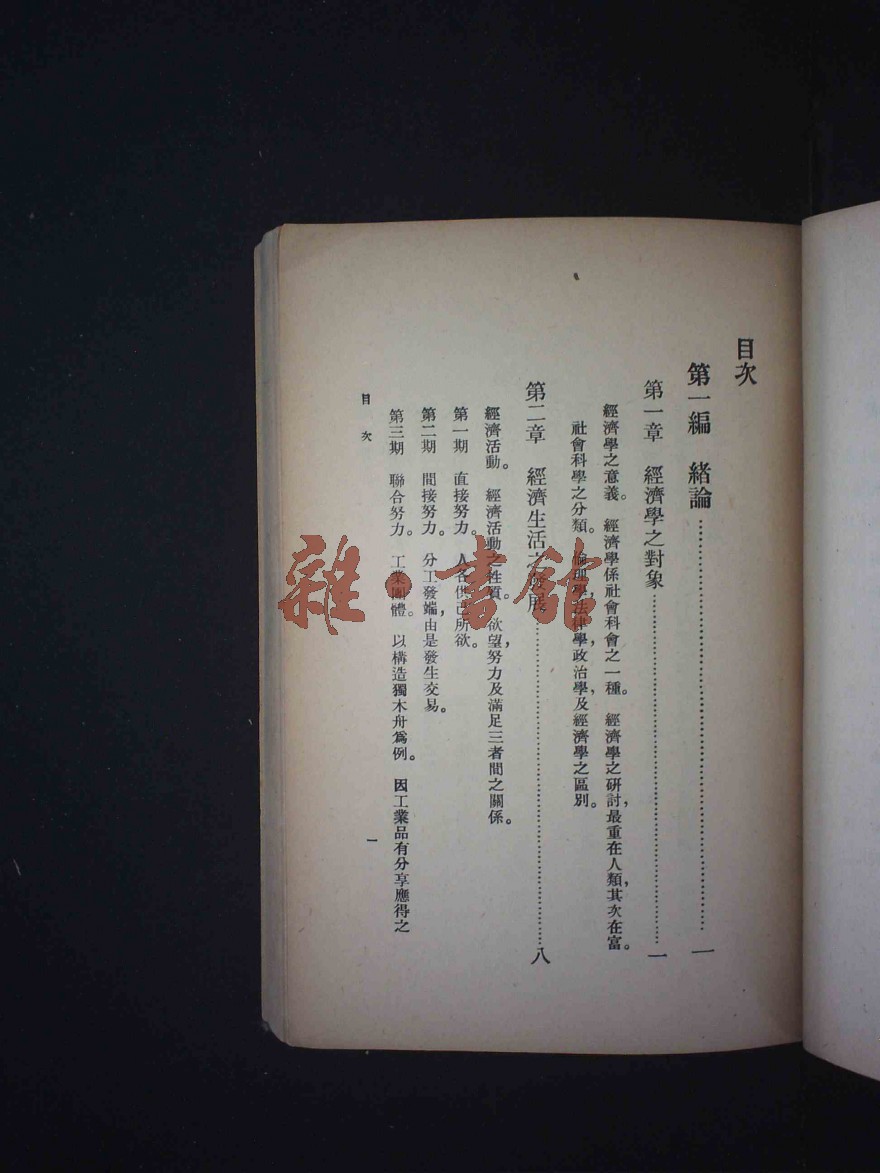 目次
第一編　緒論……一
第一章　經濟學之對象……一
經濟學之意義。　經濟學係社會科會之一種。　經濟學之研討，最重在人類，其次在富。
社會科學之分類。　倫理學，法律學，政治學，及經濟學之區別。
第二章　經濟生活之發展……八
經濟活動。　經濟活動之性質。　欲望，努力及滿足三者間之關係。
第一期　直接努力。　人各供己所欲。
第二期　間接努力。　分工發端，由是發生交易。
第三期　聯合努力。　工業團體。　以構造獨木舟爲例。　因工業品有分享應得之
目次
一
雜·書館